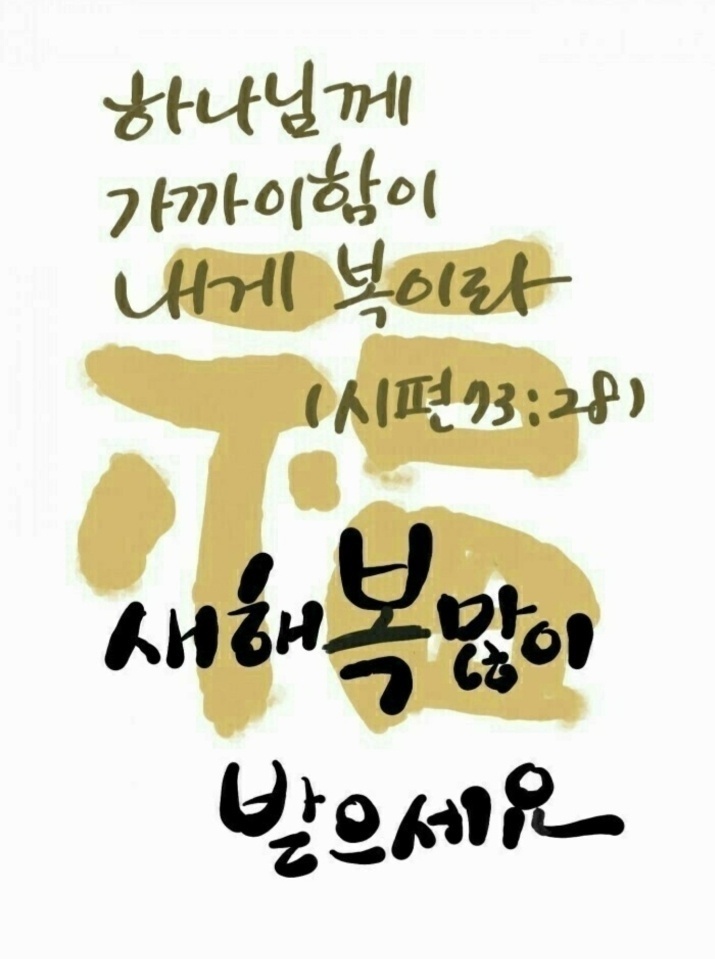 하나님께
가까이함이
내게 복이라
(시편73:28)
福
새해복많이
받으세요